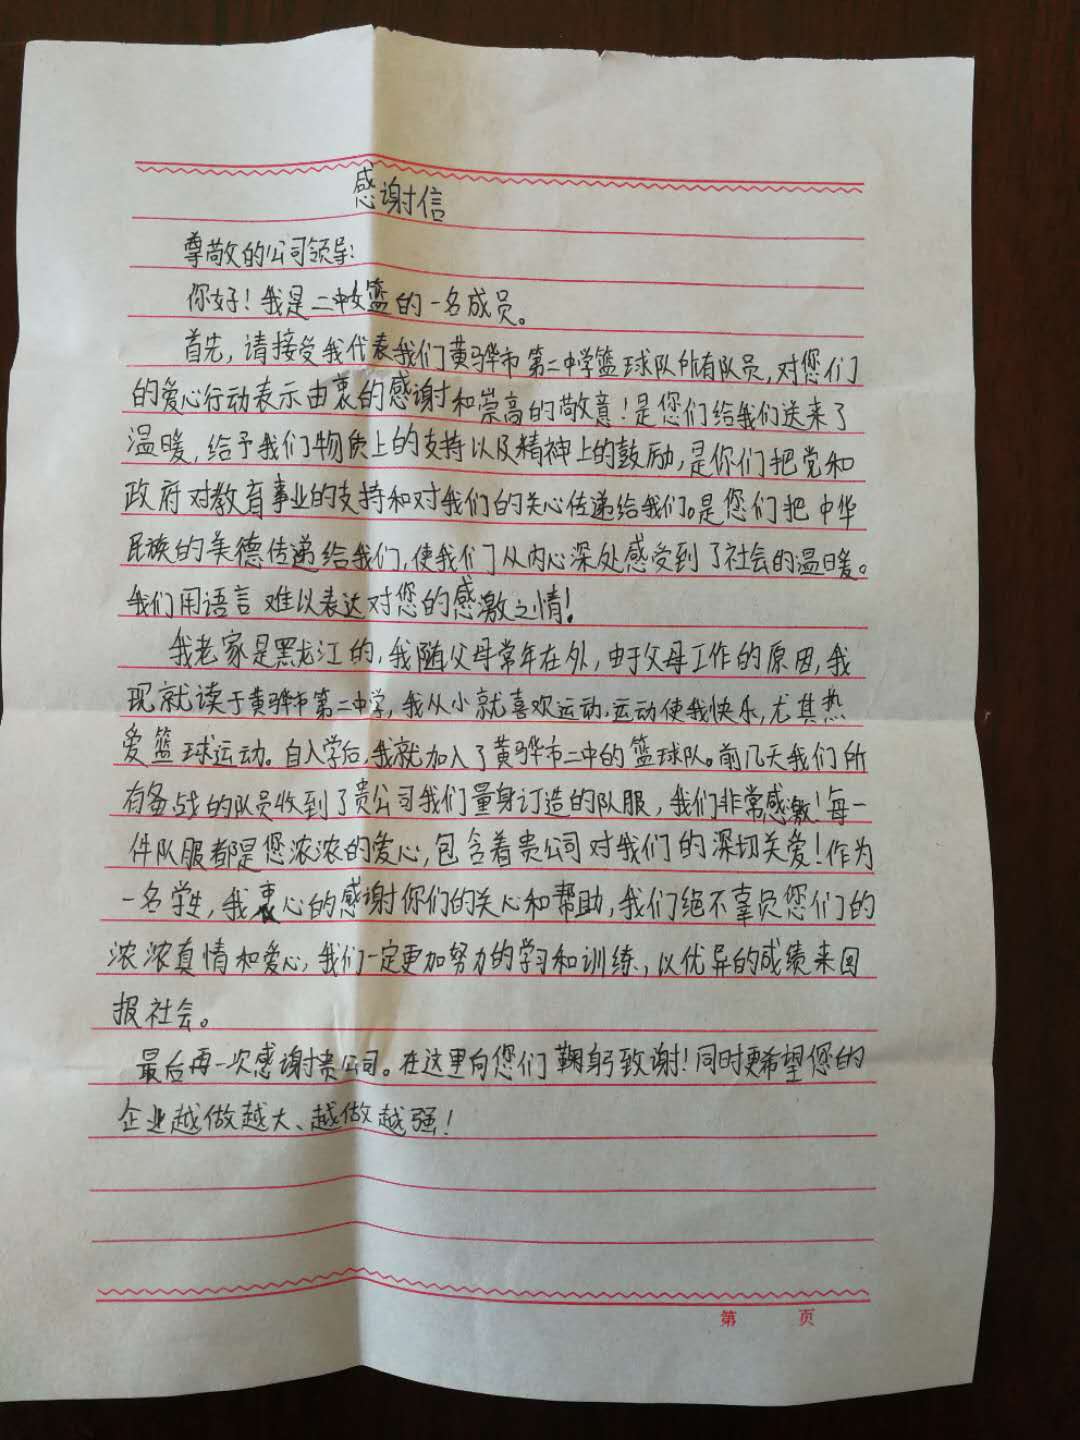 感谢信
尊敬的公司领导：
你好！我是二中女篮的一名成员。
首先，请接受我代表我们黄骅市第二中学篮球队所有队员，对您们
的爱心行动表示由衷的感谢和崇高的敬意！是您们给我们送来了
温暖，给予我们物质上的支持以及精神上的鼓励，是你们把党和
政府对教育事业的支持和对我们的关心传递给我们。是您们把中华
民族的美德传递给我们，使我们从内心深处感受到了社会的温暖。
我们用语言难以表达对您的感激之情！
我老家是黑龙江的，我随父母常年在外，由于父母工作的原因，我
现就读于黄骅市第二中学，我从小就喜欢运动，运动使我快乐，尤其热
爱篮球运动。自入学后，我就加入了黄骅市二中的篮球队。前几天我们所
有备战的队员收到了贵公司我们量身订造的队服，我们非常感激！每一
件队服都是您浓浓的爱心，包含着贵公司对我们的深切关爱！作为
一名学生，我衷心的感谢你们的关心和帮助，我们绝不辜负您们的
浓浓真情和爱心，我们一定更加努力的学习和训练，以优异的成绩来回
报社会。
最后再一次感谢贵公司。在这里向您们鞠躬致谢！同时更希望您的
企业越做越大、越做越强！
第 页